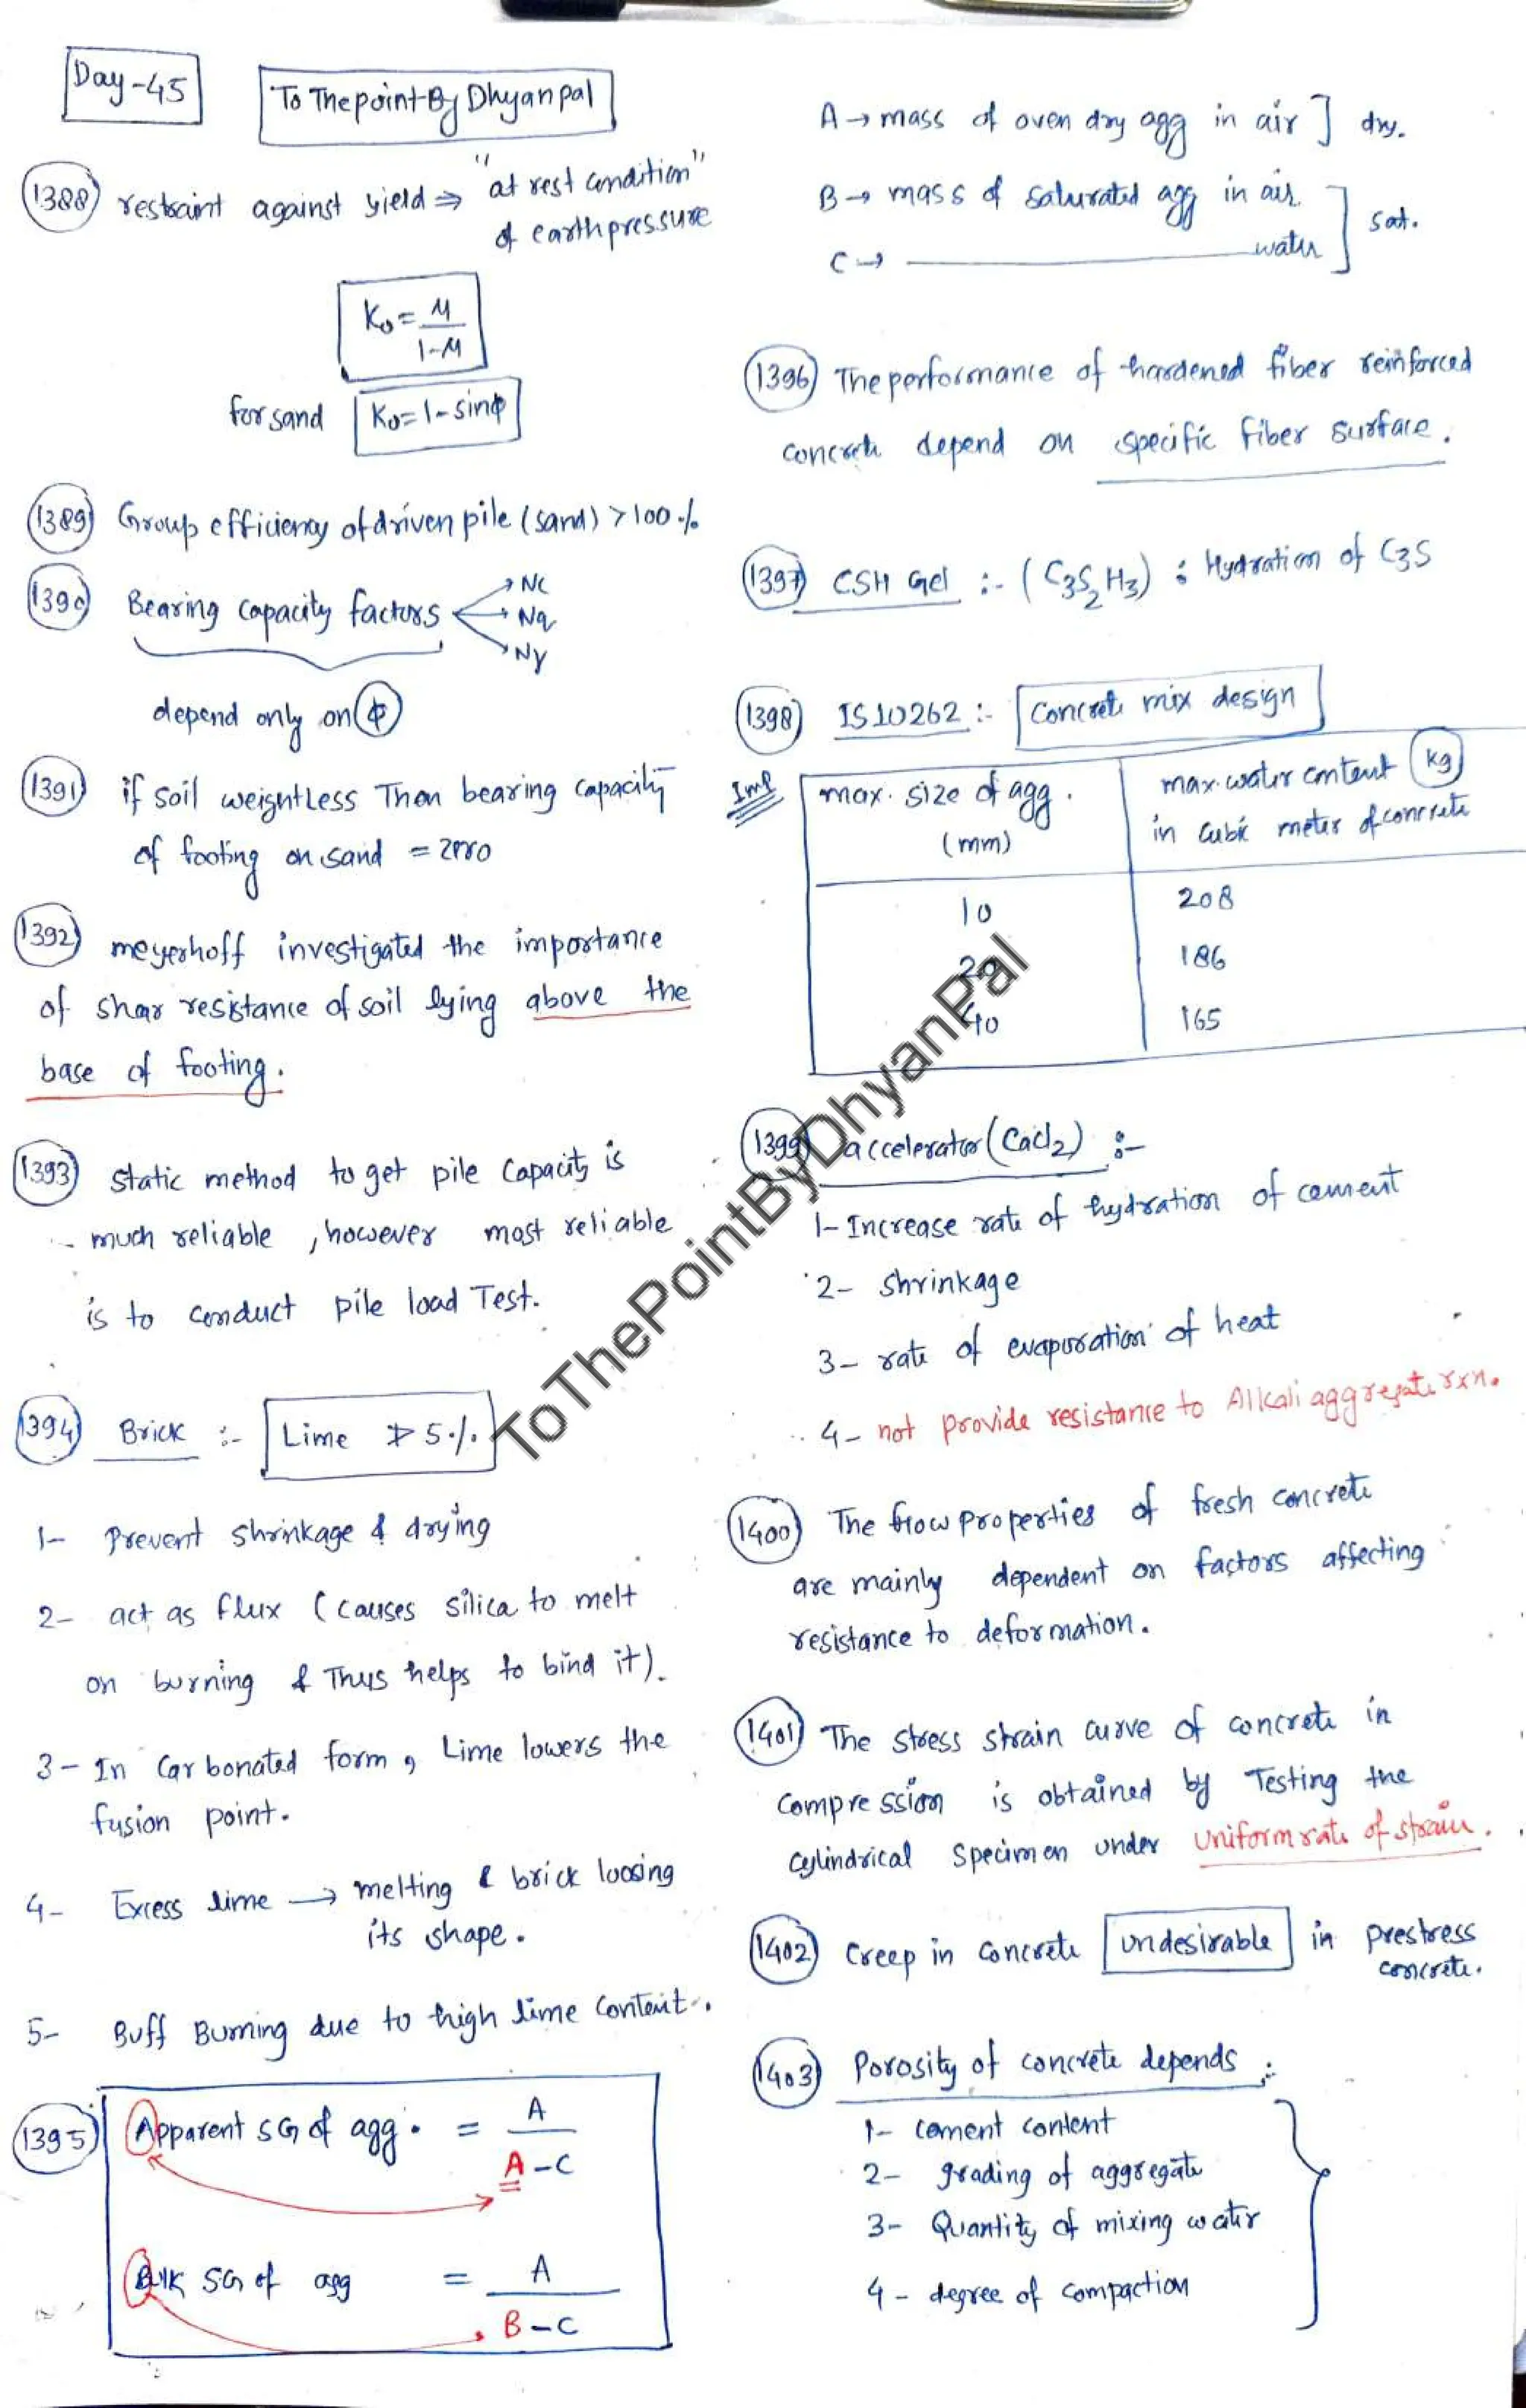 Day-45
To The point By Dhyanpal
1388 restraint against yield ⇒ "at rest condition"
of earth pressure
K₀ = μ / 1-μ
for sand K₀ = 1 - sinφ
1389 Group efficiency of driven pile (sand) > 100 %
1390 Bearing capacity factors → Nc
→ Nq
→ Nγ
depend only on φ
1391 if soil weightless Then bearing capacity
of footing on sand = zero
1392 meyerhoff investigated the importance
of shear resistance of soil lying above the
base of footing.
1393 static method to get pile capacity is
much reliable, however most reliable
is to conduct pile load Test.
1394 Brick :- Lime ≯ 5 %
1- Prevent shrinkage & drying
2- act as flux (causes silica to melt
on burning & Thus helps to bind it).
3- In Carbonated form, Lime lowers the
fusion point.
4- Excess lime → melting & brick loosing
its shape.
5- Buff Burning due to high lime content.
1395 Apparent SG of agg. = A / A-C
Bulk SG of agg = A / B-C
A → mass of oven dry agg in air ] dry.
B → mass of saturated agg in air
C → ——— water ] sat.
1396 The performance of hardened fiber reinforced
concrete depend on specific fiber surface.
1397 CSH Gel :- (C₃S₂H₃) : Hydration of C₃S
1398 IS 10262 :- Concrete mix design
Imp
max. size of agg. (mm) | max. water content (kg) in cubic meter of concrete
10 | 208
20 | 186
40 | 165
1399 accelerator (CaCl₂) :-
1- Increase rate of hydration of cement
2- shrinkage
3- rate of evaporation of heat
4- not provide resistance to Alkali aggregate rxn.
1400 The flow properties of fresh concrete
are mainly dependent on factors affecting
resistance to deformation.
1401 The stress strain curve of concrete in
compression is obtained by Testing the
cylindrical specimen under uniform rate of strain.
1402 Creep in concrete undesirable in prestress
concrete.
1403 Porosity of concrete depends :-
1- cement content
2- grading of aggregate
3- Quantity of mixing water
4- degree of compaction
ToThePointByDhyanPal